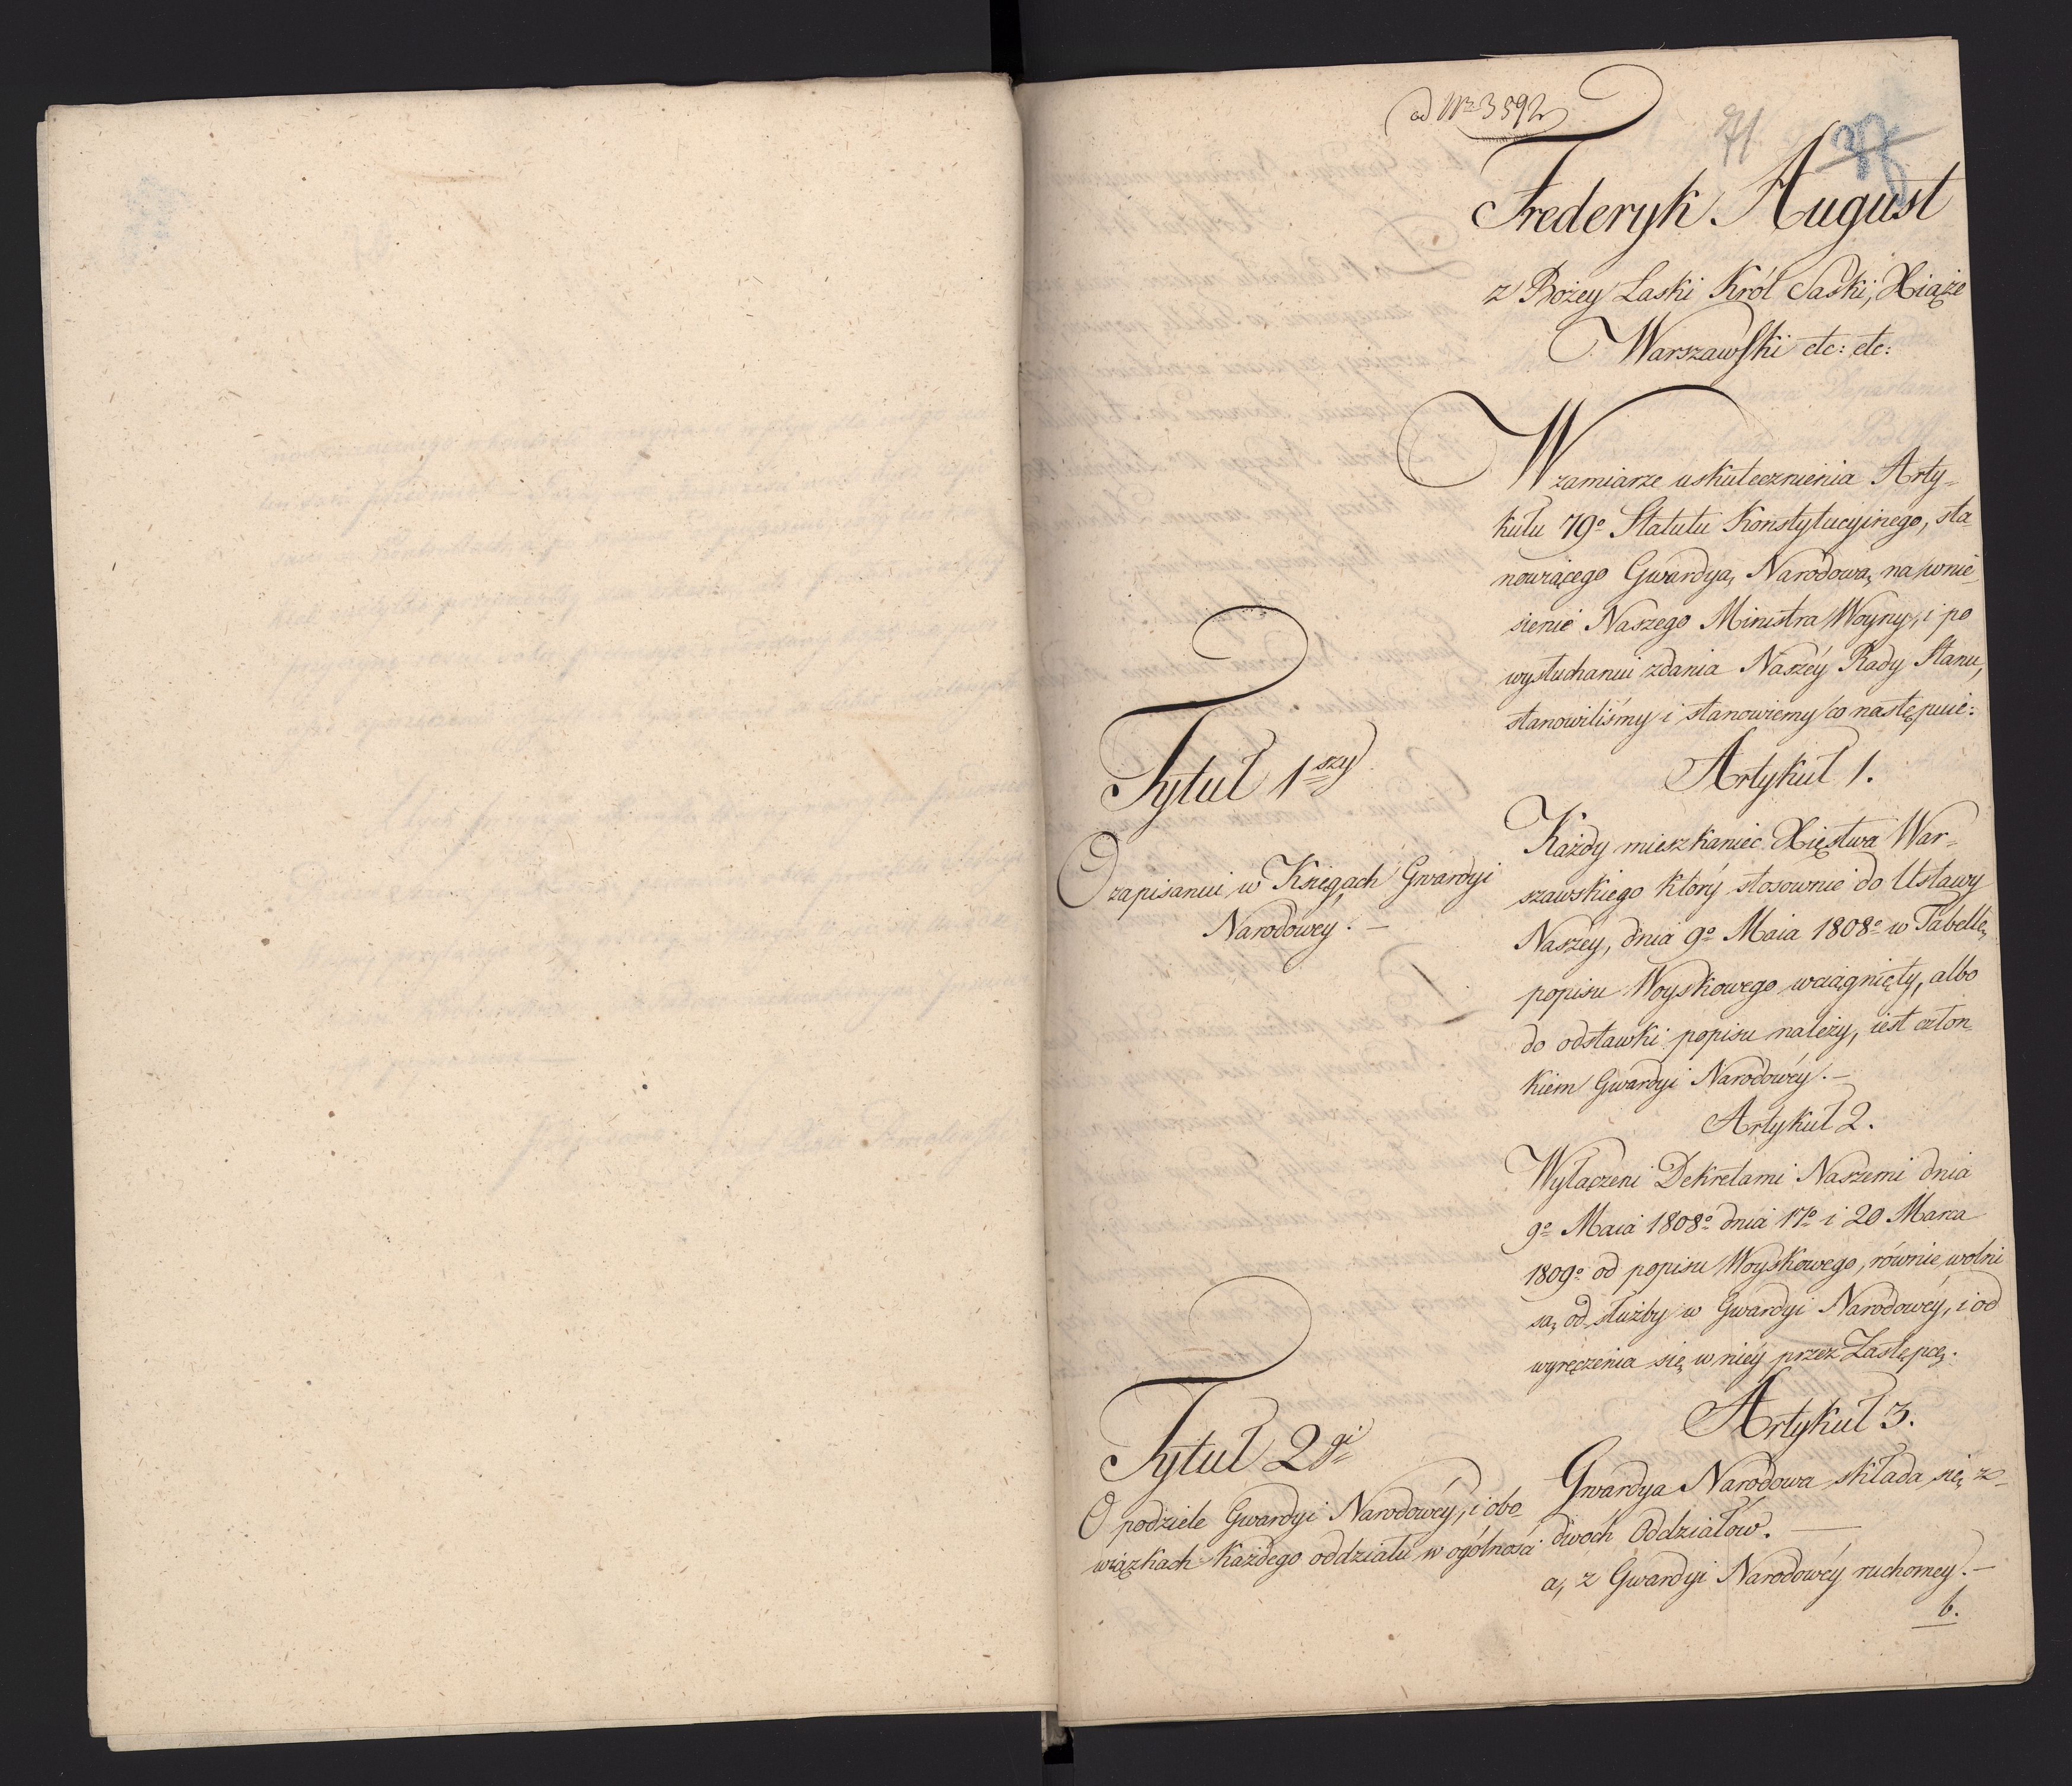 ad Nr. 3592
71
Frederyk August
z Bożey Laski Król Saski, Xiąże
Warszawski etc: etc:
W zamiarze uskutecznienia Arty-
kułu 79º Statutu Konstytucyinego, sta-
nowiącego Gwardyą Narodową, na wnie-
sienie Naszego Ministra Woyny, i po
wysłuchaniu zdania Naszéy Rady Stanu,
stanowiliśmy i stanowiemy co następuie:
Tytuł 1szy
O zapisaniu w Księgach Gwardyi
Narodowéy. —
Artykuł 1.
Każdy mieszkaniec Xięstwa War-
szawskiego który stosownie do Ustawy
Naszey, dnia 9º Maia 1808º w Tabellę
popisu Woyskowego wciągnięty, albo
do odstawki popisu należy, iest człon-
kiem Gwardyi Narodowéy. —
Artykuł 2.
Wyłączeni Dekretami Naszemi dnia
9º Maia 1808º dnia 17º i 20 Marca
1809º od popisu Woyskowego, równie wolni
są od służby w Gwardyi Narodowéy, i od
wyręczenia się w niéy przez Zastępcę.
Tytuł 2gi
O podziele Gwardyi Narodowéy, i obo-
wiązkach każdego oddziału w ogólności
Artykuł 3.
Gwardya Narodowa składa się z
dwóch Oddziałów. —
a, z Gwardyi Narodowéy ruchomey. —
b.